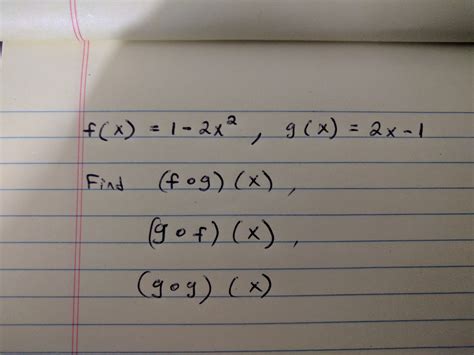 f(x) = 1-2x², g(x) = 2x-1
Find (f∘g)(x),
(g∘f)(x),
(g∘g)(x)